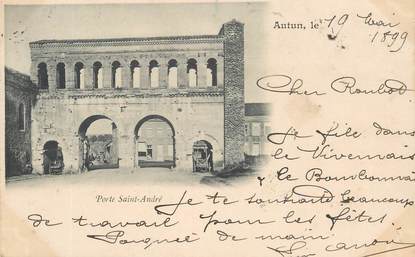 Autun, le 19 Mai
1899
Cher Roubot
Je file dans
le Nivernais
& le Bourbonnais
Porte Saint-André
Je te souhaite beaucoup
de travail pour les fêtes.
Poignée de main.